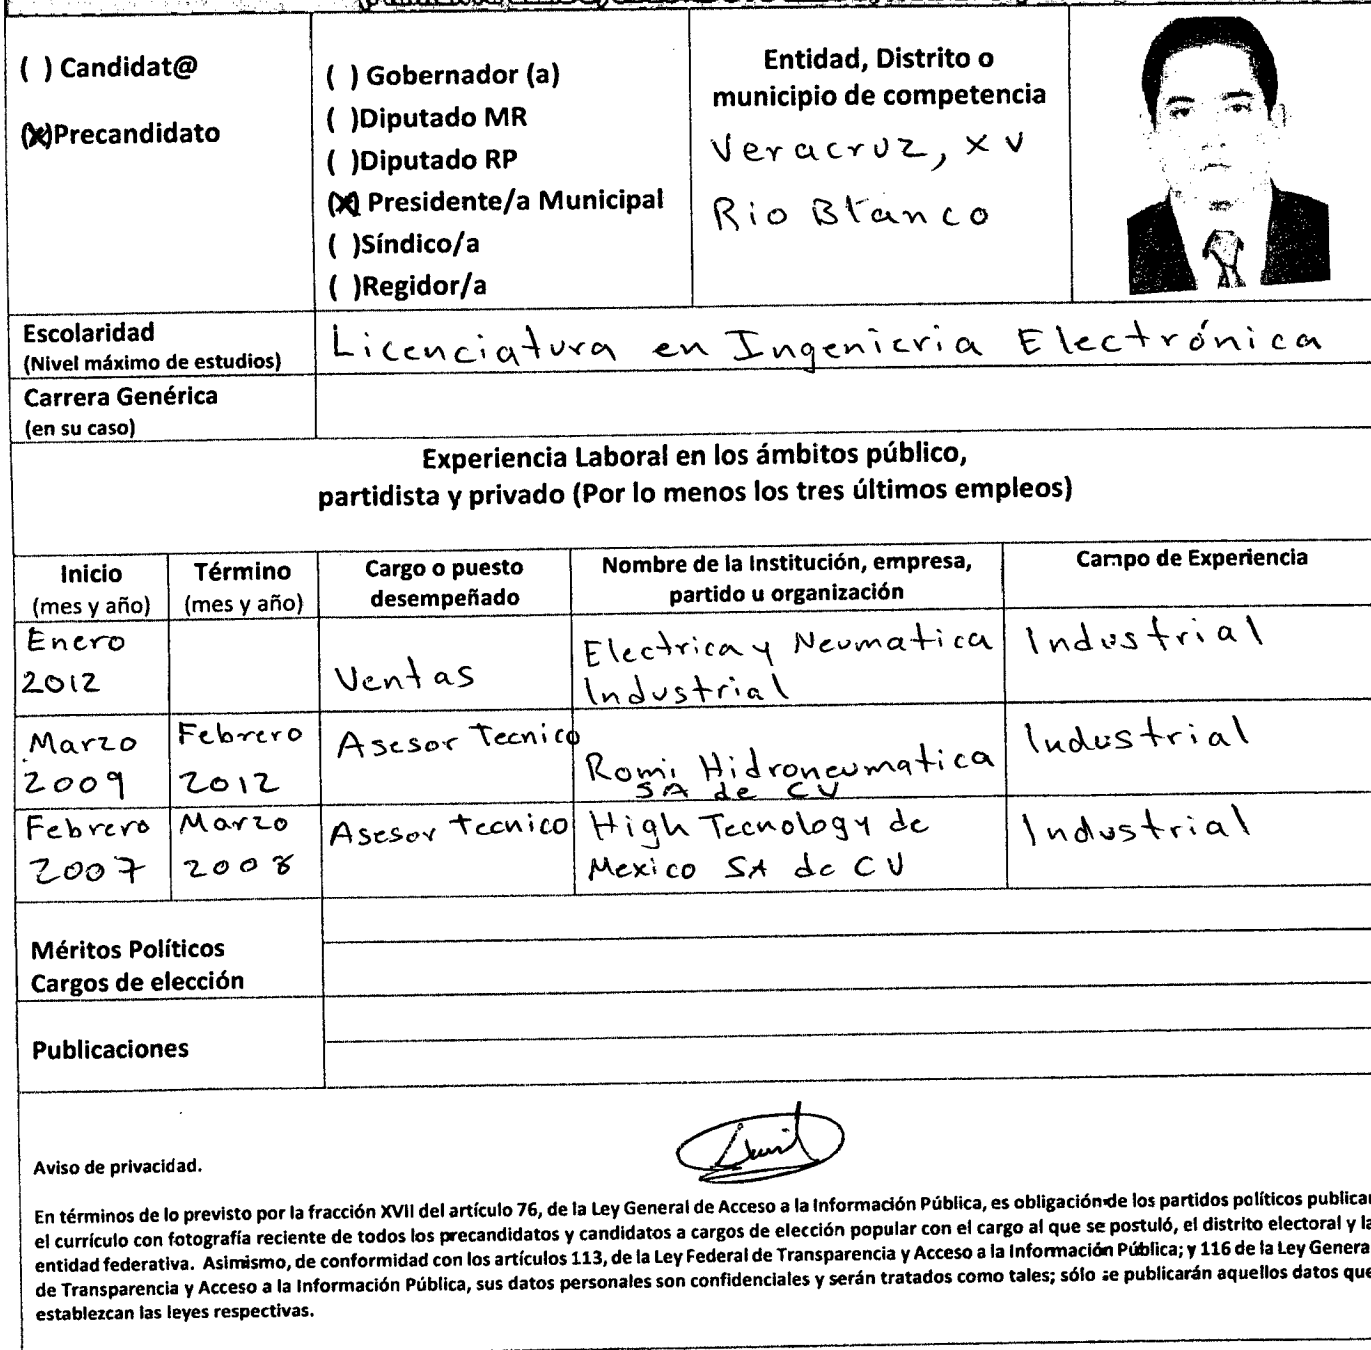 ( ) Candidat@
(x)Precandidato
( ) Gobernador (a)
( )Diputado MR
( )Diputado RP
(X) Presidente/a Municipal
( )Síndico/a
( )Regidor/a
Entidad, Distrito o
municipio de competencia
Veracruz, XV
Rio Blanco
Escolaridad
(Nivel máximo de estudios)
Licenciatura en Ingenieria Electrónica
Carrera Genérica
(en su caso)
Experiencia Laboral en los ámbitos público,
partidista y privado (Por lo menos los tres últimos empleos)
Inicio
(mes y año)
Término
(mes y año)
Cargo o puesto
desempeñado
Nombre de la Institución, empresa,
partido u organización
Campo de Experiencia
Enero
2012
Ventas
Electrica y Neumatica
Industrial
Industrial
Marzo
2009
Febrero
2012
Asesor Tecnico
Romi Hidroneumatica
SA de CV
Industrial
Febrero
2007
Marzo
2008
Asesor tecnico
High Tecnology de
Mexico SA de CV
Industrial
Méritos Políticos
Cargos de elección
Publicaciones
Aviso de privacidad.
En términos de lo previsto por la fracción XVII del artículo 76, de la Ley General de Acceso a la Información Pública, es obligación de los partidos políticos publicar
el currículo con fotografía reciente de todos los precandidatos y candidatos a cargos de elección popular con el cargo al que se postuló, el distrito electoral y la
entidad federativa. Asimismo, de conformidad con los artículos 113, de la Ley Federal de Transparencia y Acceso a la Información Pública; y 116 de la Ley General
de Transparencia y Acceso a la Información Pública, sus datos personales son confidenciales y serán tratados como tales; sólo se publicarán aquellos datos que
establezcan las leyes respectivas.